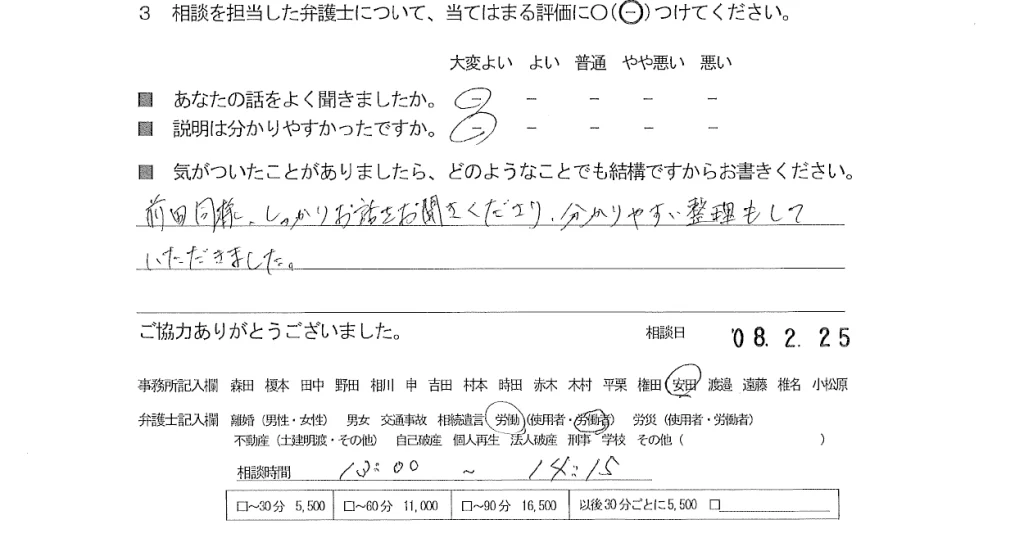 3 相談を担当した弁護士について、当てはまる評価に○(⊖)つけてください。
大変よい よい 普通 やや悪い 悪い
■ あなたの話をよく聞きましたか。 - - - - -
■ 説明は分かりやすかったですか。 - - - - -
■ 気がついたことがありましたら、どのようなことでも結構ですからお書きください。
前回同様、しっかりお話をお聞きくださり、分かりやすい整理もして
いただきました。
ご協力ありがとうございました。 相談日 '08.2.25
事務所記入欄 森田 榎本 田中 野田 相川 申 吉田 村本 時田 赤木 木村 平栗 権田 安田 渡邉 遠藤 椎名 小松原
弁護士記入欄 離婚(男性・女性) 男女 交通事故 相続遺言 労働(使用者・労働者) 労災(使用者・労働者)
不動産(土建明渡・その他) 自己破産 個人再生 法人破産 刑事 学校 その他( )
相談時間 13:00 ~ 14:15
□~30分 5,500 □~60分 11,000 □~90分 16,500 以後30分ごとに5,500 □